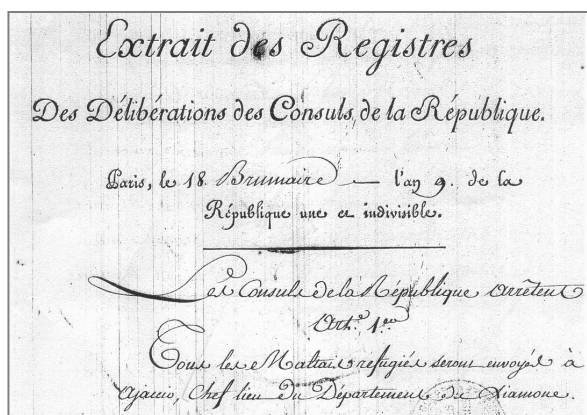 Extrait des Registres
Des Délibérations des Consuls de la République.
Paris, le 18 Brumaire — l'an 9. de la
République une et indivisible.
Les Consuls de la République arrêtent
Art.e 1.er
Tous les Maltais refugiés seront envoyé à
ajaccio, Chef lieu du Département du Liamone.